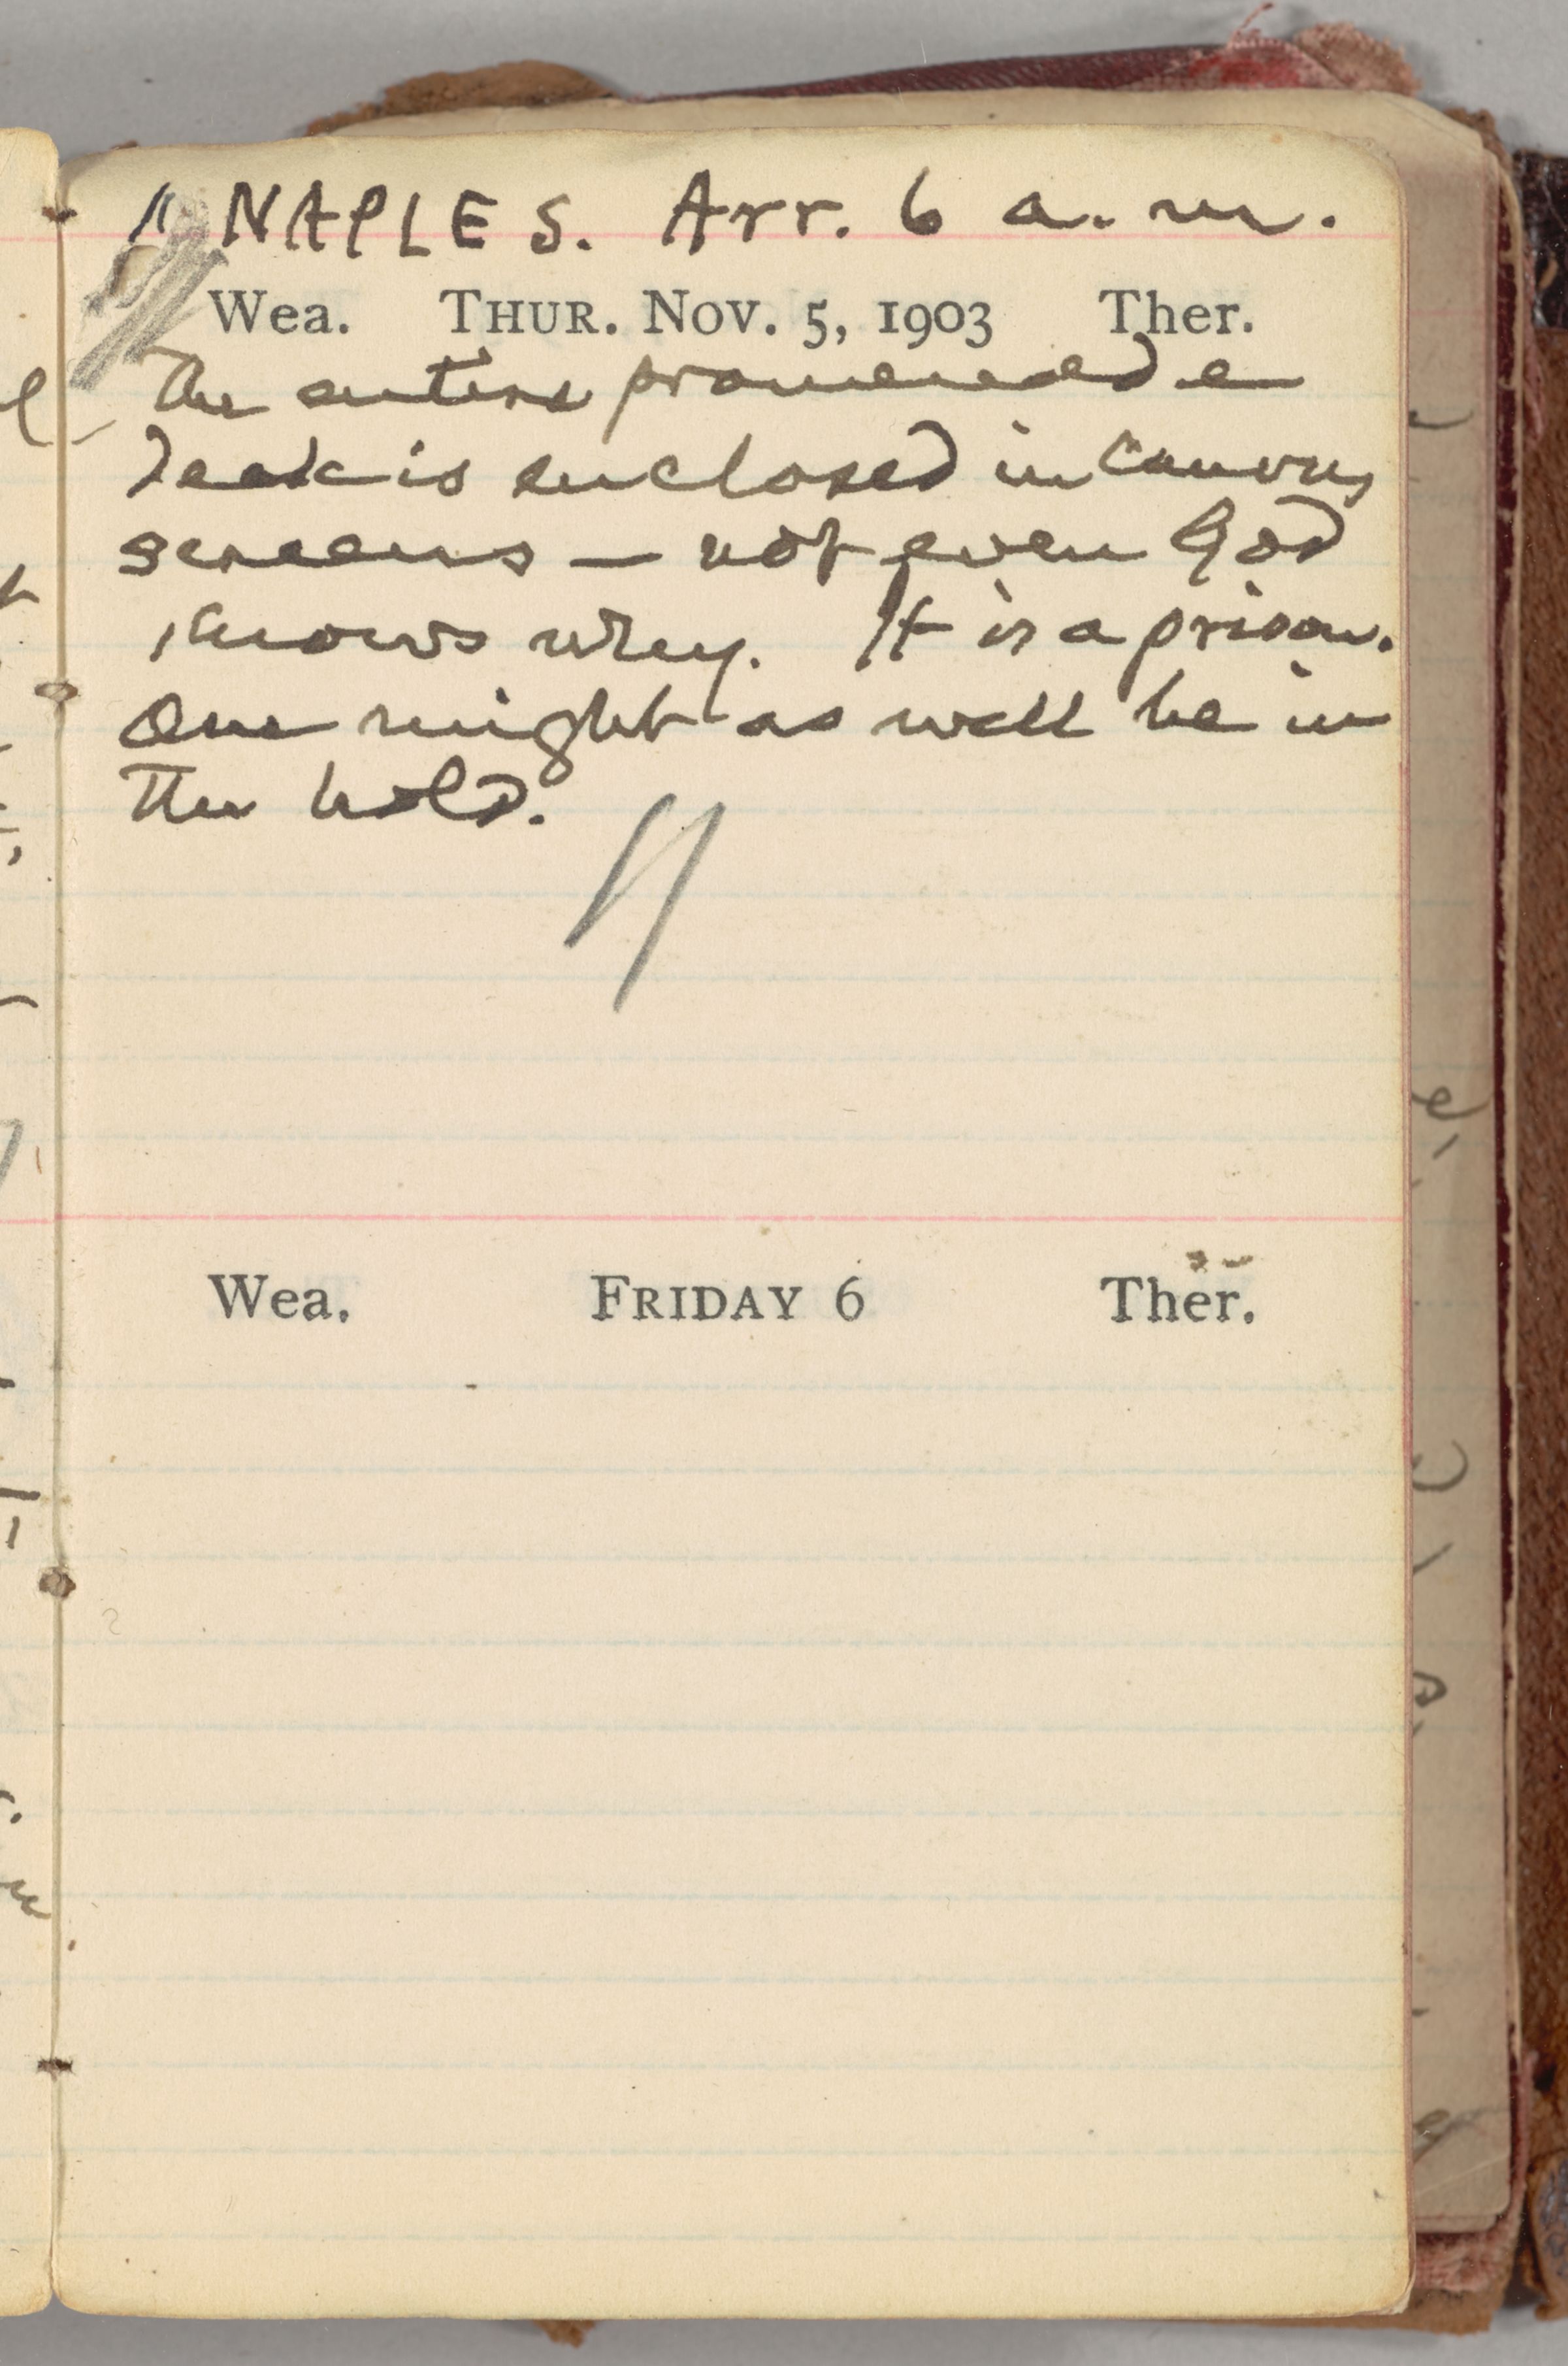 NAPLES. Arr. 6 a. m.
Wea. THUR. NOV. 5, 1903 Ther.
The entire promenade
deck is enclosed in canvas
screens — not even God
knows why. It is a prison.
One might as well be in
the hold.
Wea. FRIDAY 6 Ther.